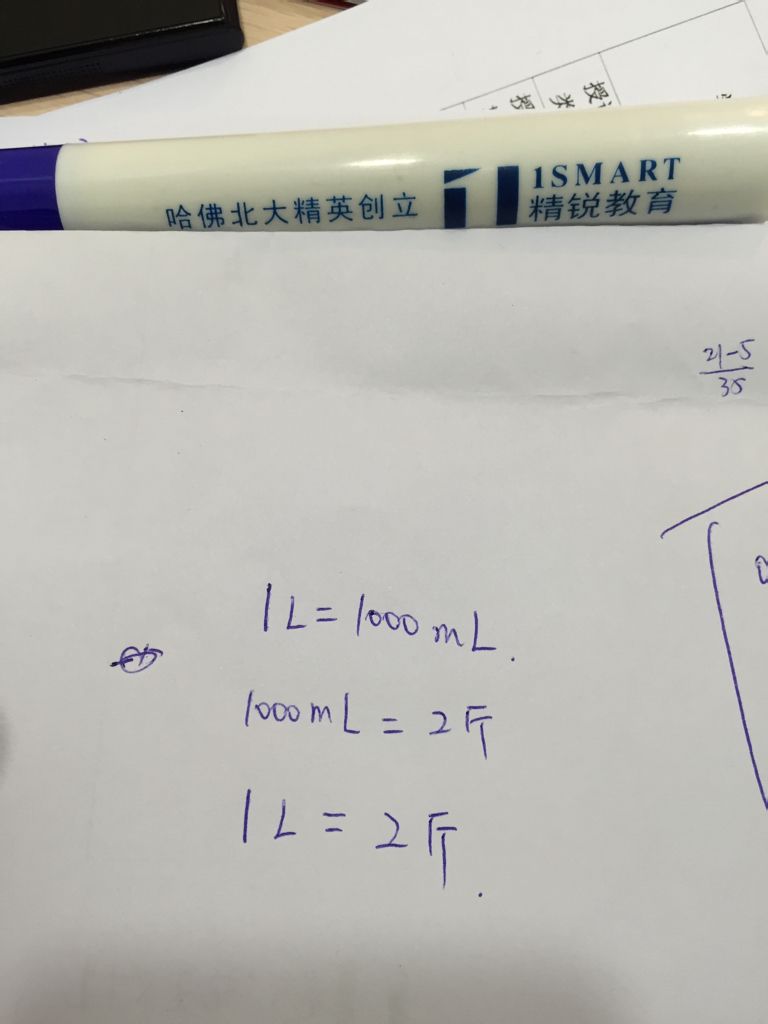 授
类
授
哈佛北大精英创立
1SMART
精锐教育
21-5
35
1L=1000mL.
1000mL=2斤
1L=2斤.